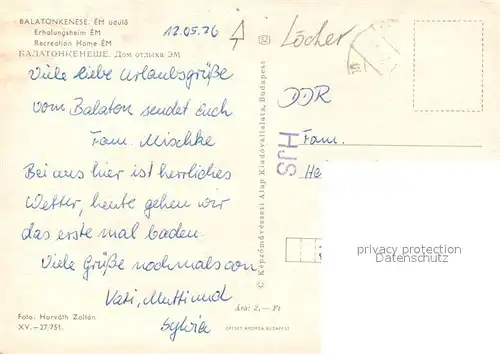 BALATONKENESE. ÉM üdülő
Erholungsheim ÉM
Recreation Home ÉM
БАЛАТОНКЕНЕШЕ. Дом отдыха ЭМ
12.05.76
Löcher
Viele liebe Urlaubsgrüße
vom Balaton sendet Euch
Fam. Mischke
Bei uns hier ist herrliches
Wetter, heute gehen wir
das erste mal baden.
Viele Grüße nochmals von
Vati, Mutti und
Sylvia
Foto: Horváth Zoltán
XV.-27.751.
Ára: 2,- Ft
OFFSET NYOMDA BUDAPEST
© Képzőművészeti Alap Kiadóvállalata, Budapest
DDR
HJS
Fam.
He
privacy protection
Datenschutz